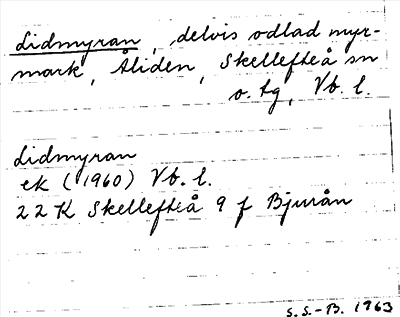 Lidmyran, delvis odlad myr-
mark, Åliden, Skellefteå sn
o. tg, Vb. l.
Lidmyran
ek (1960) Vb. l.
22 K Skellefteå 9 f Bjurån
S. S.-B. 1963